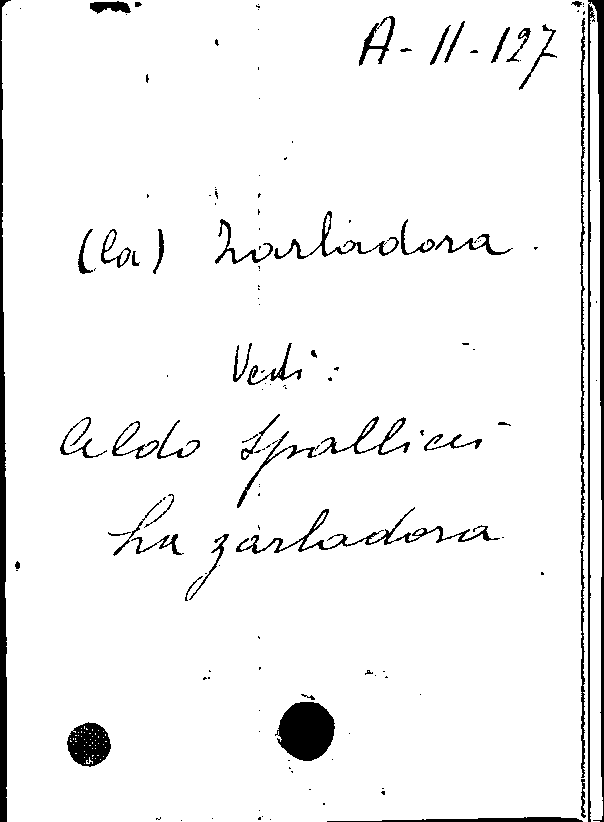 A-II-127
(la) Zarladora.
Vedi:
Aldo Spallicci
La zarladora